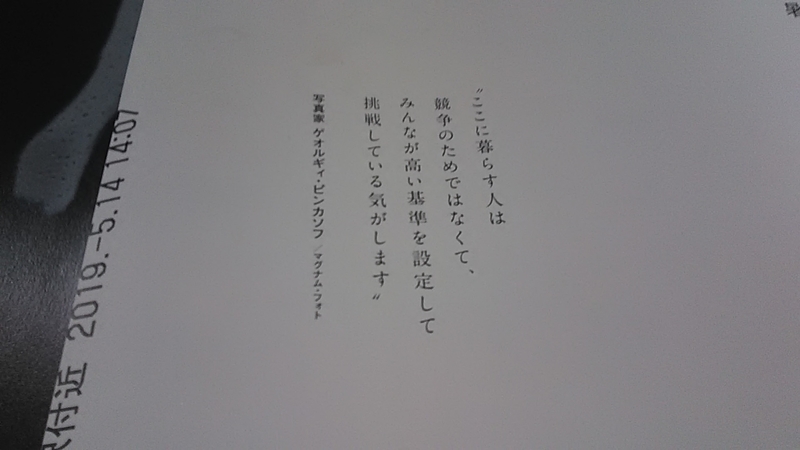 〝ここに暮らす人は
競争のためではなくて、
みんなが高い基準を設定して
挑戦している気がします〟
写真家 ゲオルギィ・ピンカソフ／マグナム・フォト
付近 2019.-5.14 14:07